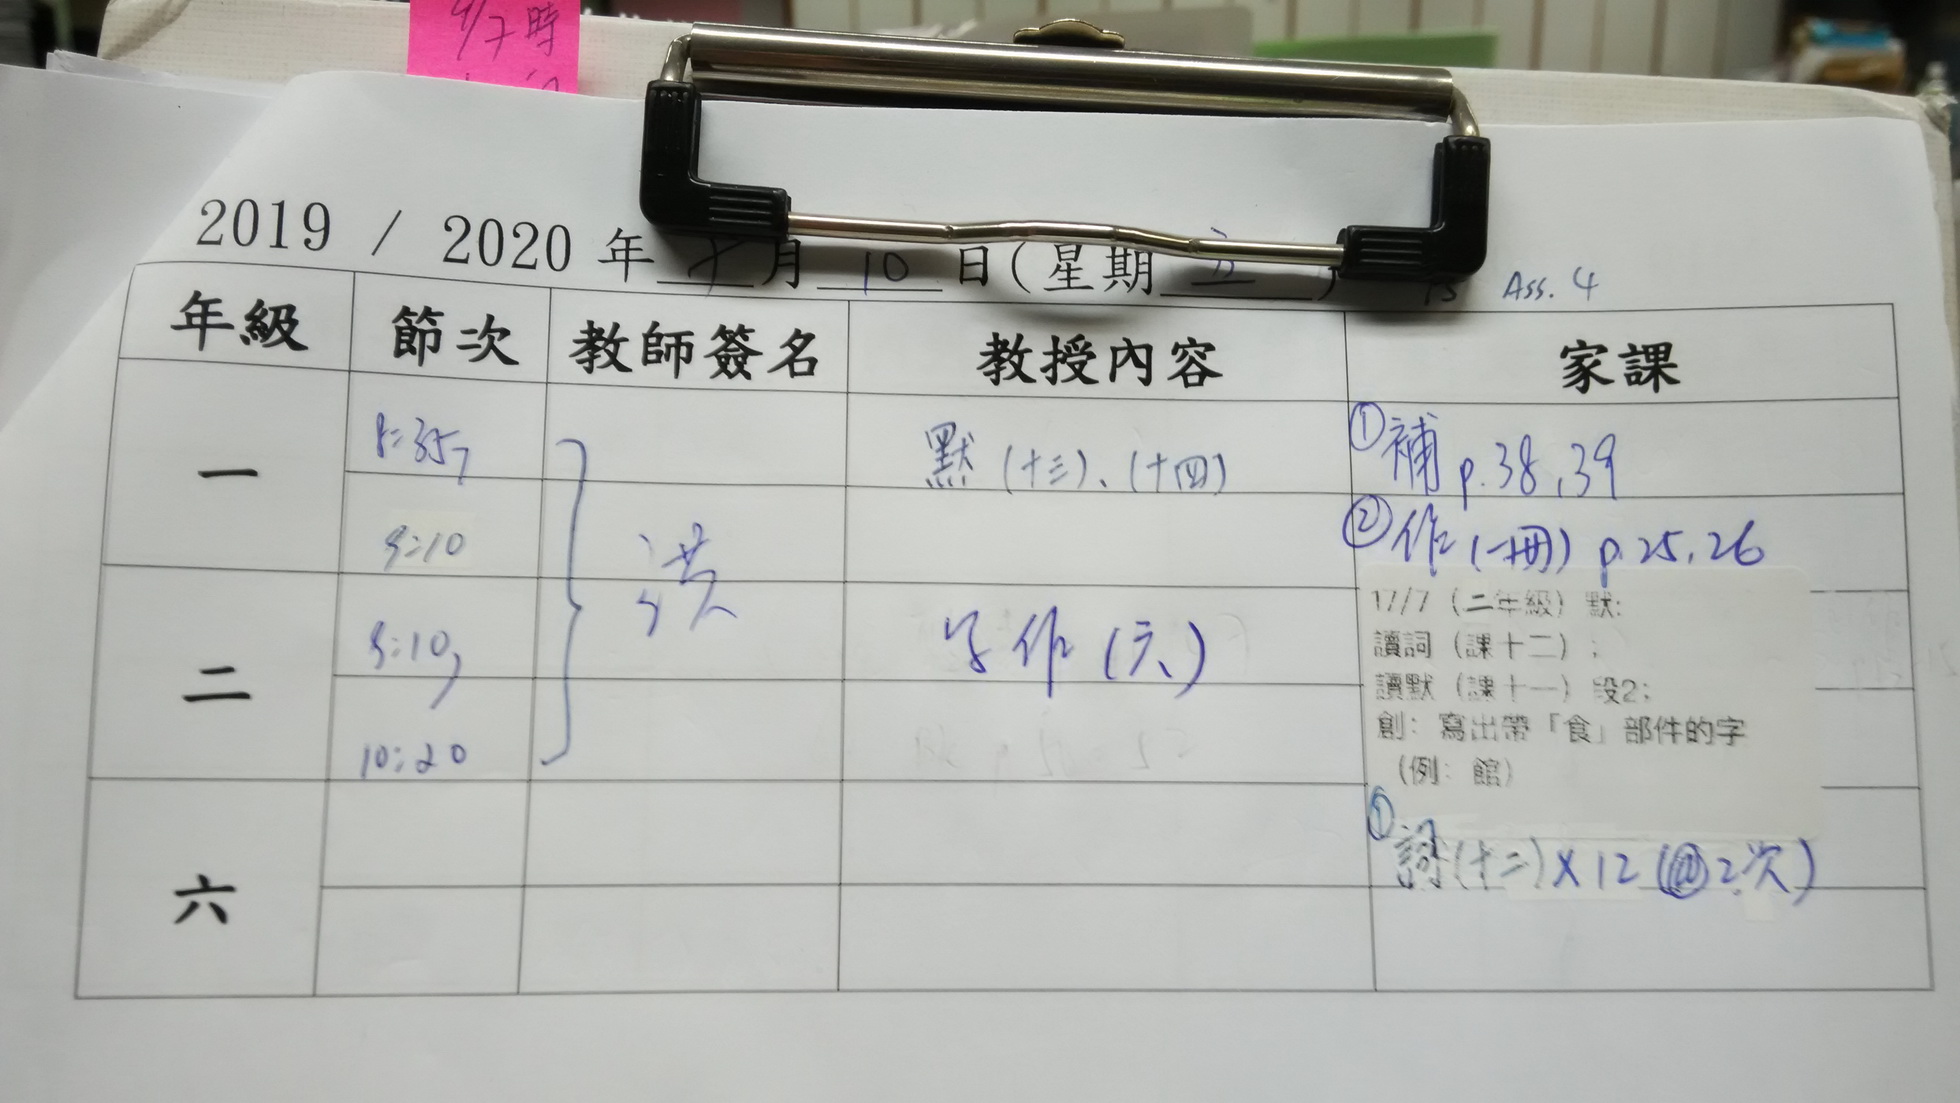 9/7時
2019 / 2020 年 七 月 10 日(星期 五 )
Ass. 4
年級 節次 教師簽名 教授內容 家課
一 8:35, 默 (十三)、(十四) ①補 p.38,39
9:10 ②作(一冊) p.25,26
洪
二 9:10, 作(六) 17/7(二年級)默:
讀詞(課十二);
讀默(課十一)段2;
10:20 創: 寫出帶「食」部件的字
(例: 館)
六 ①詞(十二)X12(@2次)